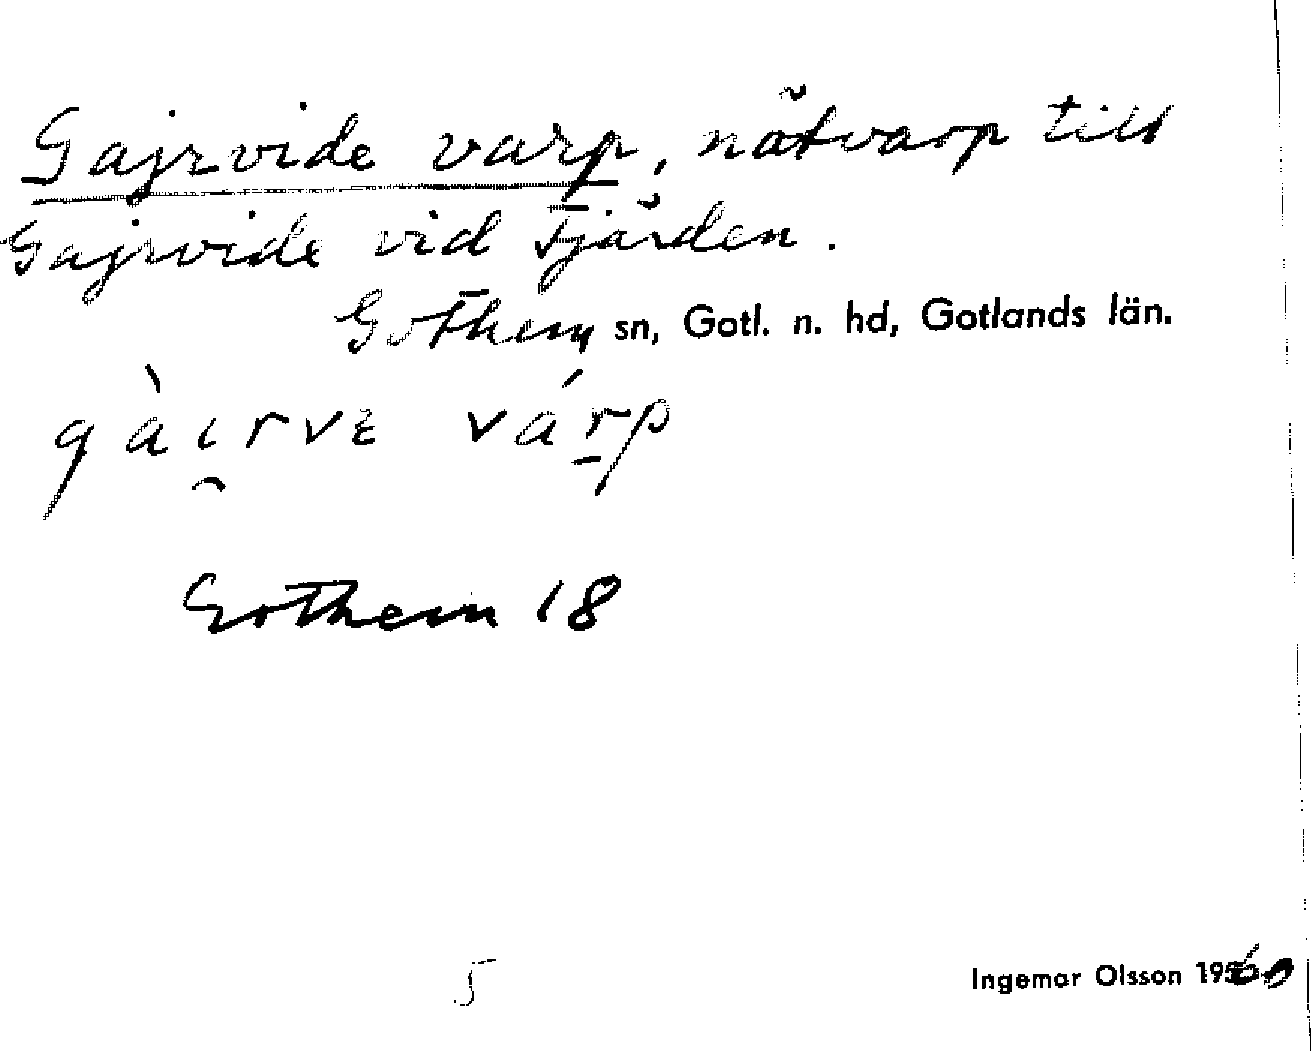 Gajrvide varp, nätvarp till
Gajrvide vid Fjärden.
Gothem sn, Gotl. n. hd, Gotlands län.
gàı̯rvɛ várp
Gothem 18
5
Ingemar Olsson 1960